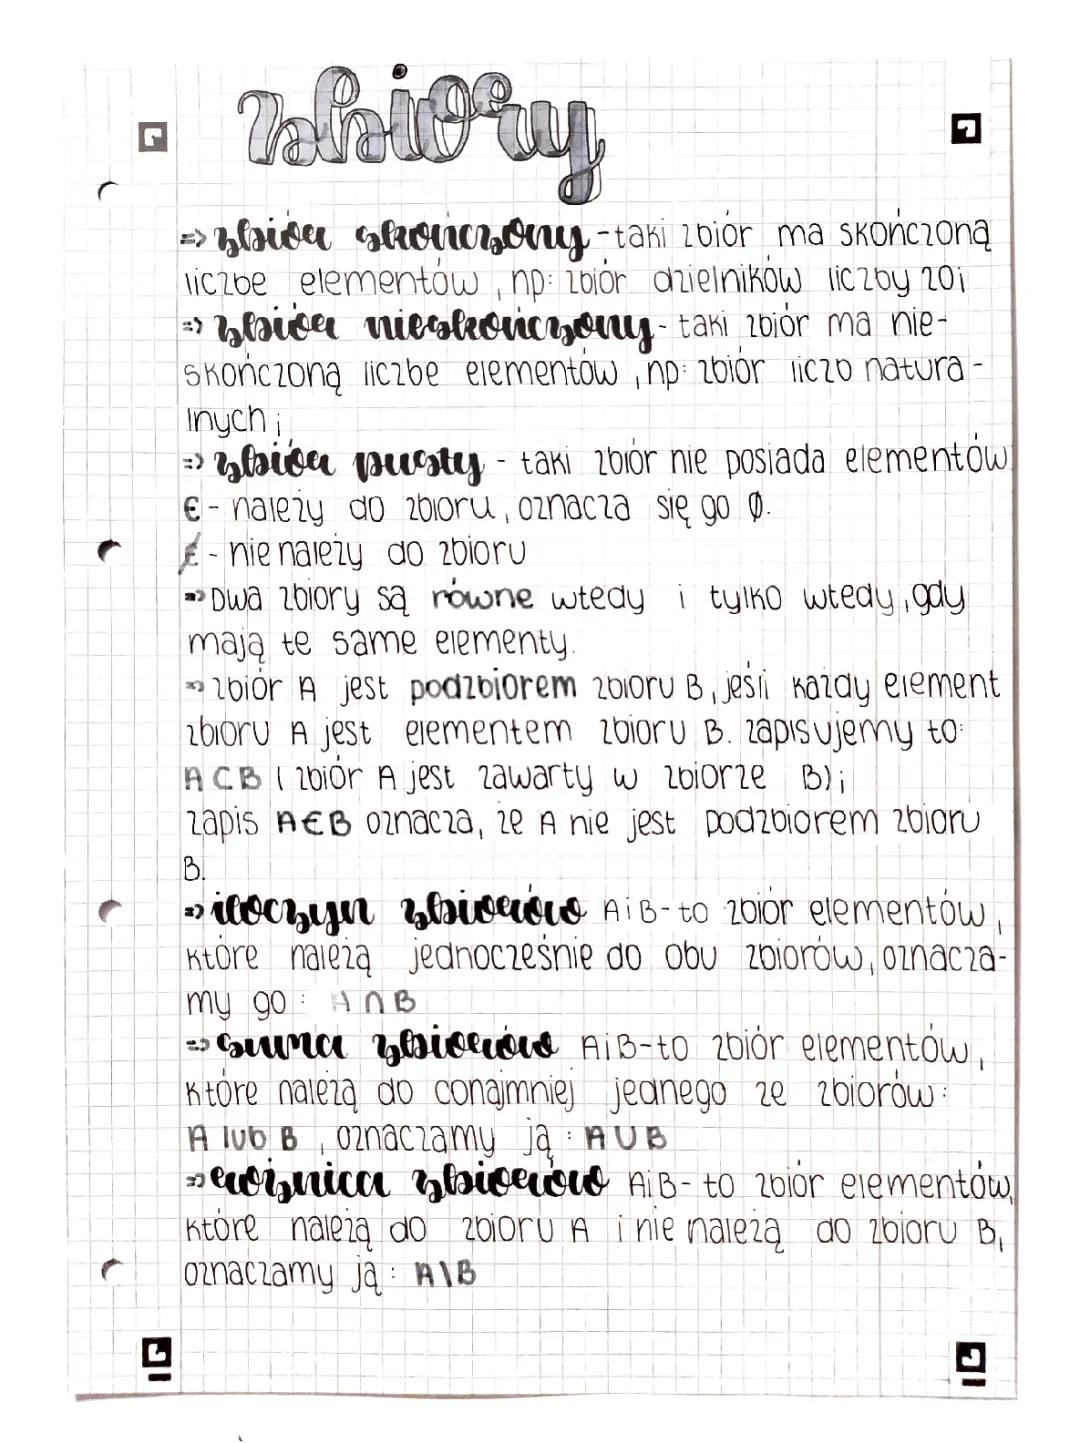 zbiory
=> zbiór skończony - taki zbiór ma skończoną
liczbe elementów, np: zbiór dzielników liczby 20;
=> zbiór nieskończony - taki zbiór ma nie-
skończoną liczbe elementów, np: zbiór liczb natura-
lnych;
=> zbiór pusty - taki zbiór nie posiada elementów
∈ - należy do zbioru, oznacza się go Ø.
∉ - nie należy do zbioru
=> Dwa zbiory są równe wtedy i tylko wtedy, gdy
mają te same elementy.
=> zbiór A jest podzbiorem zbioru B, jeśli każdy element
zbioru A jest elementem zbioru B. zapisujemy to:
A⊂B ( zbiór A jest zawarty w zbiorze B);
zapis A∈B oznacza, że A nie jest podzbiorem zbioru
B.
=> iloczyn zbiorów A i B - to zbiór elementów,
które należą jednocześnie do obu zbiorów, oznacza-
my go: A∩B
=> suma zbiorów A i B - to zbiór elementów,
które należą do conajmniej jednego ze zbiorów:
A lub B, oznaczamy ją: A∪B
=> różnica zbiorów A i B - to zbiór elementów,
które należą do zbioru A i nie należą do zbioru B,
oznaczamy ją: A\B